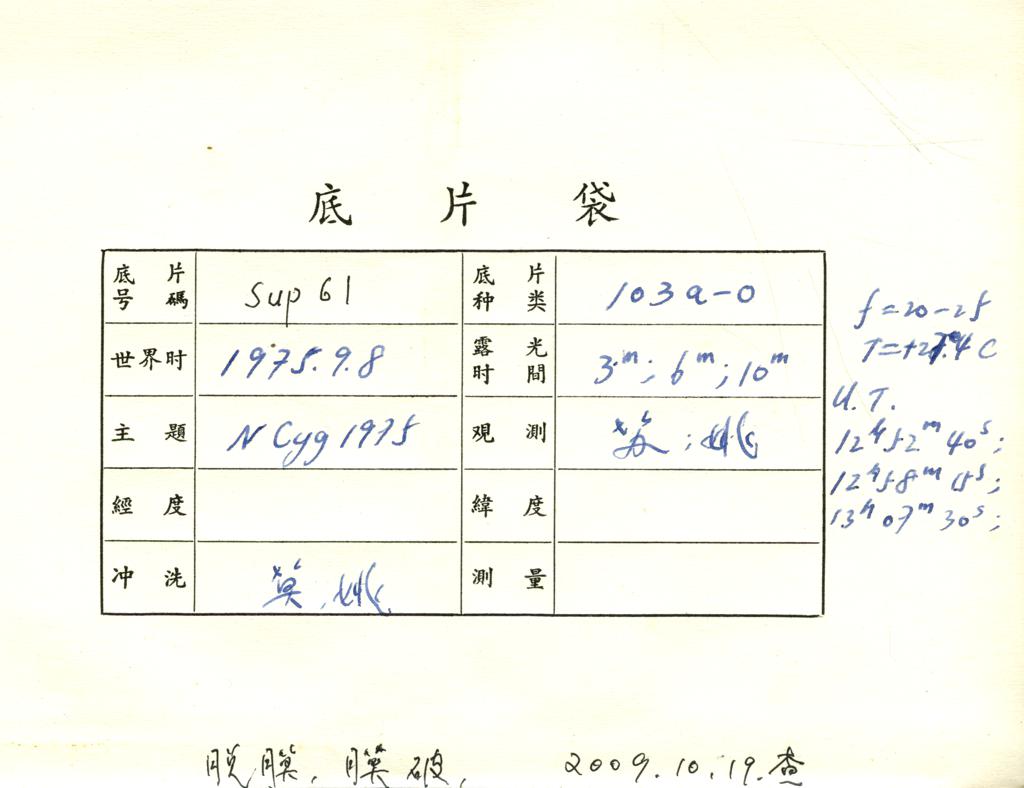 底片袋
底片号碼 Sup 61 底片种类 103a-O
世界时 1975.9.8 露光时間 3ᵐ; 6ᵐ; 10ᵐ
主題 N Cyg 1975 观測 苏; 姚
經度 緯度
冲洗 莫, 姚 測量
f=20-25
T=+27.4 C
U.T.
12ʰ52ᵐ40ˢ;
12ʰ58ᵐ15ˢ;
13ʰ07ᵐ30ˢ;
脱膜, 膜破, 2009.10.19.查